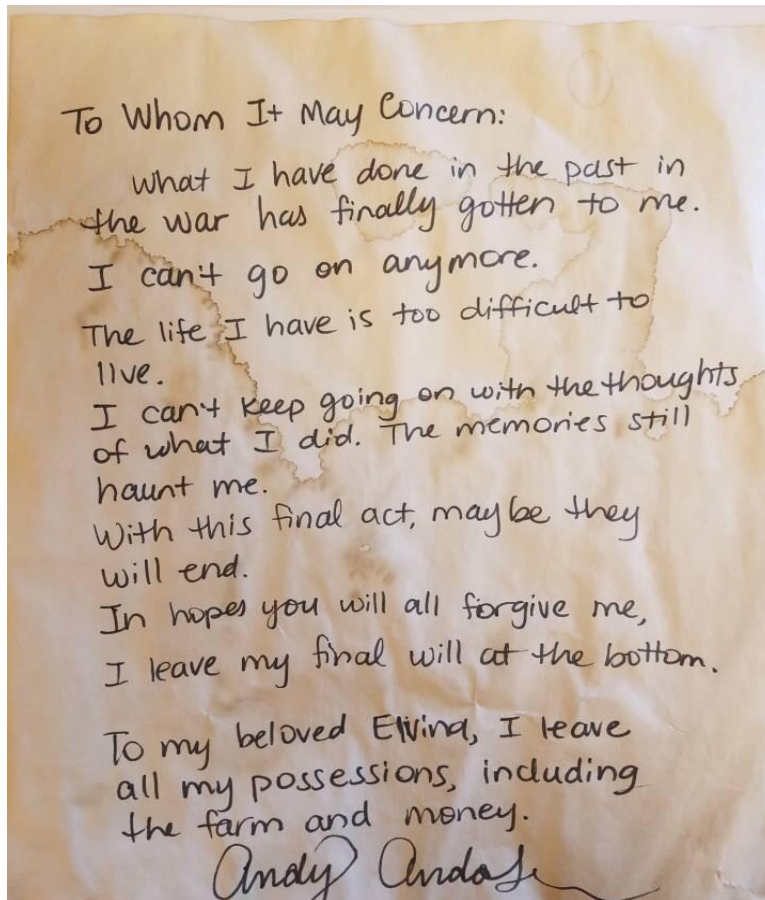 To Whom It May Concern:
What I have done in the past in
the war has finally gotten to me.
I can't go on anymore.
The life I have is too difficult to
live.
I can't keep going on with the thoughts
of what I did. The memories still
haunt me.
With this final act, maybe they
will end.
In hopes you will all forgive me,
I leave my final will at the bottom.
To my beloved Elvina, I leave
all my possessions, including
the farm and money.
Andy